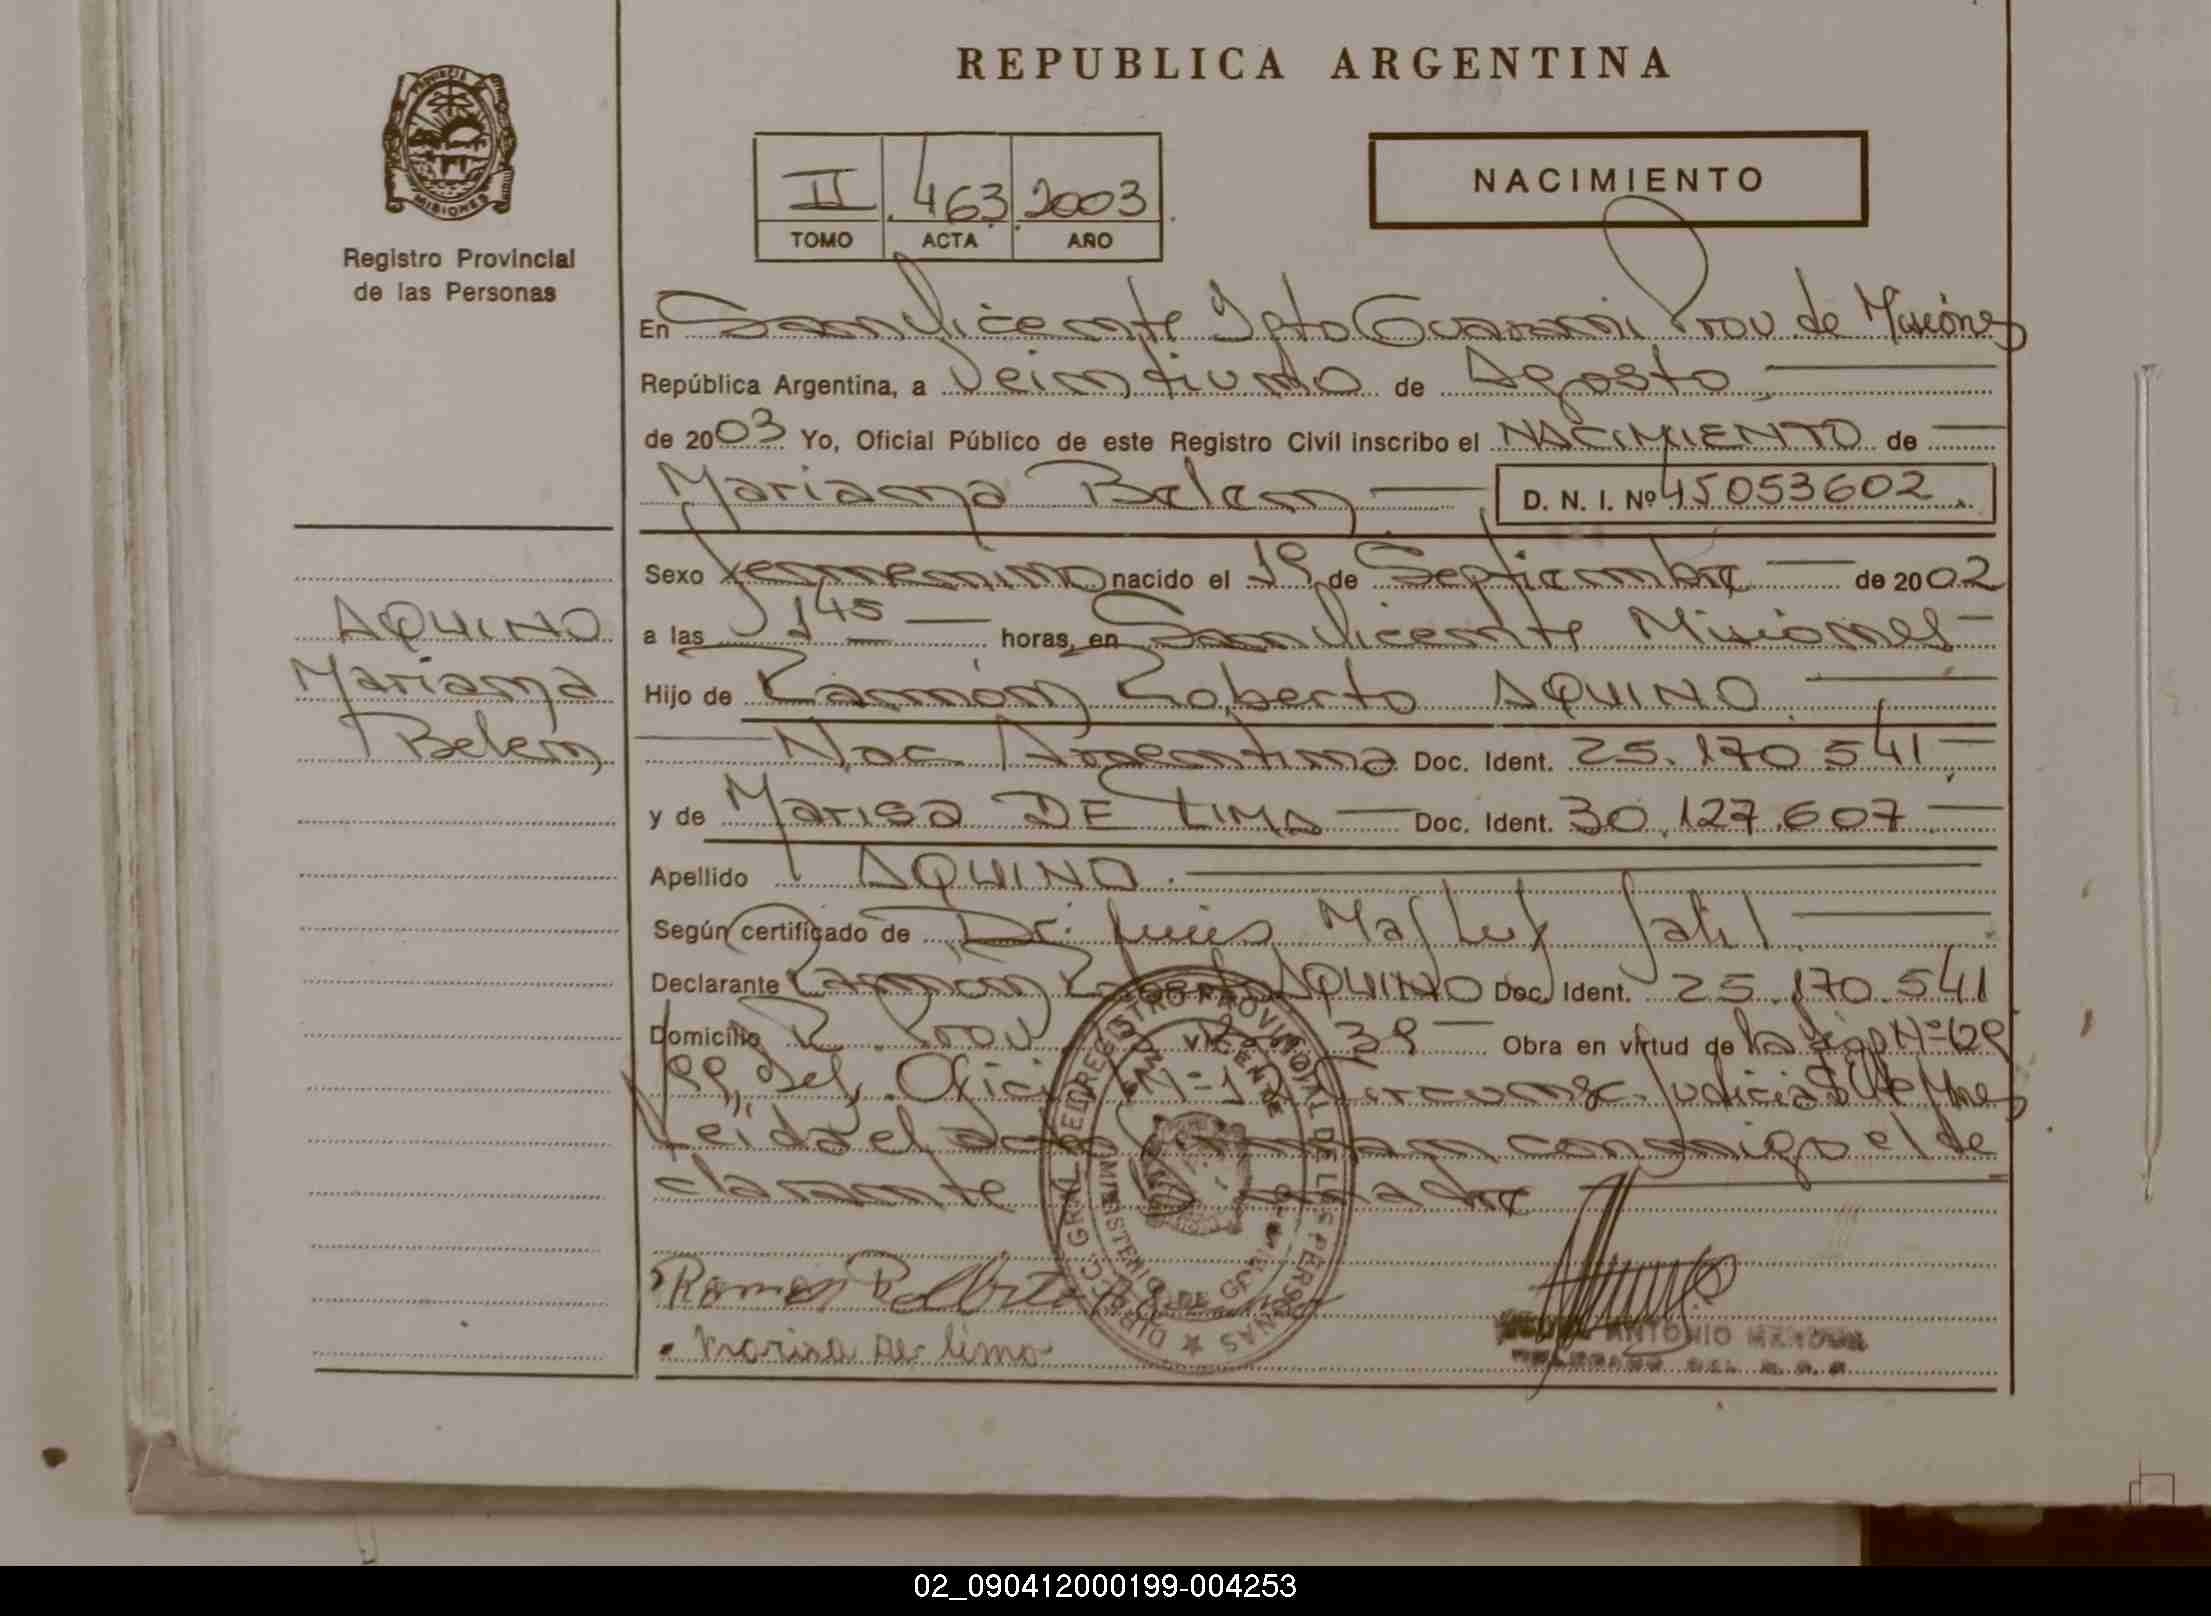 REPUBLICA ARGENTINA
PROVINCIA
MISIONES
Registro Provincial
de las Personas
II 463 2003
TOMO ACTA AÑO
NACIMIENTO
En San Vicente Dpto Guarani Prov de Misiones
República Argentina, a Veintiuno de Agosto
de 2003 Yo, Oficial Público de este Registro Civil inscribo el NACIMIENTO de
Mariana Belen D. N. I. Nº 45053602
Sexo femenino nacido el 19 de Septiembre de 2002
AQUINO
Mariana
Belen
a las 1 45 horas, en San Vicente Misiones
Hijo de Ramón Roberto AQUINO
Nac Argentina Doc. Ident. 25.170 541
y de Marisa DE LIMA Doc. Ident. 30.127.607
Apellido AQUINO
Según certificado de Dr. Luis Jalil
Declarante Ramon Roberto AQUINO Doc. Ident. 25.170.541
Domicilio R. Prov 39 Obra en virtud de
Del. Oficio Nº 1 Circunsc. Judicial de Mnes
Leida el acta firman conmigo el de
clarante madre
Ramon
Marisa De Lima
DIREC. GRAL. DEL REGISTRO PROVINCIAL DE LAS PERSONAS
SAN VICENTE
ANTONIO
02_090412000199-004253